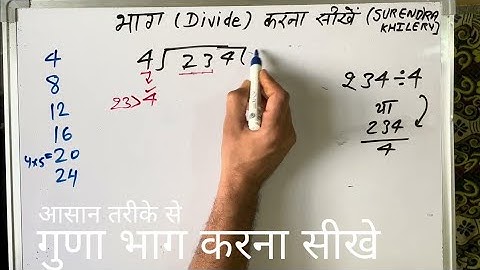 भाग (Divide) करना सीखें (SURENDRA KHILERY)
4
8
12
16
4x5=20
24
4)234(
23>4
234÷4
या
234
4
आसान तरीके से
गुणा भाग करना सीखे